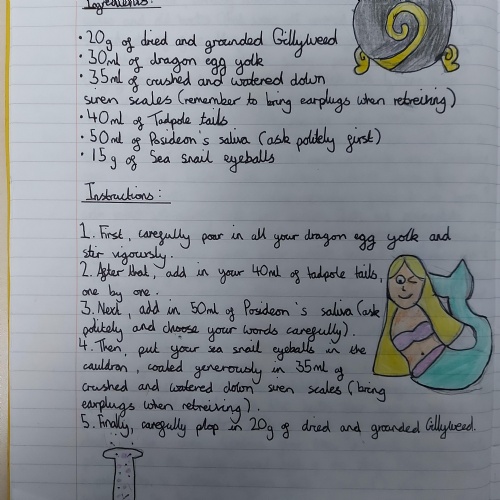 Ingredients:
• 20g of dried and grounded Gillyweed
• 30ml of dragon egg yolk
• 35ml of crushed and watered down
siren scales (remember to bring earplugs when retreiving)
• 40ml of Tadpole tails
• 50ml of Posideon's saliva (ask politely first)
• 15g of Sea snail eyeballs
Instructions:
1. First, carefully poar in all your dragon egg yolk and
stir vigoursly.
2. After that, add in your 40ml of tadpole tails,
one by one.
3. Next, add in 50ml of Posideon's saliva (ask
politely and choose your words carefully).
4. Then, put your sea snail eyeballs in the
cauldron, coated generously in 35ml of
crushed and watered down siren scales (bring
earplugs when retreiving).
5. Finally, carefully plop in 20g of dried and grounded Gillyweed.